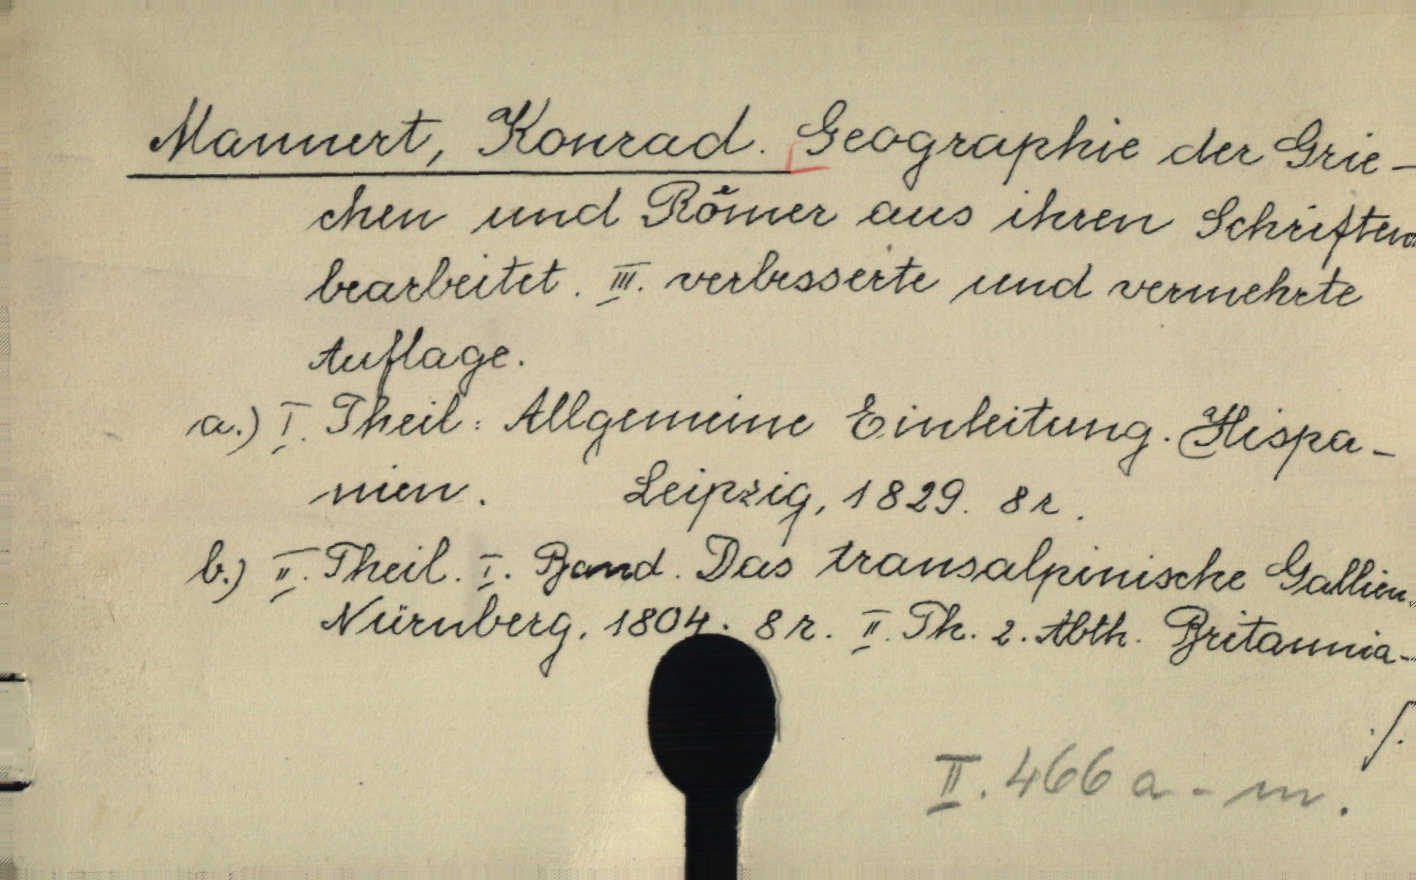 Mannert, Konrad. Geographie der Grie-
chen und Römer aus ihren Schriften
bearbeitet. III. verbesserte und vermehrte
Auflage.
a.) I. Theil: Allgemeine Einleitung. Hispa-
nien. Leipzig, 1829. 8 r.
b.) II. Theil. I. Band. Das transalpinische Gallien.
Nürnberg, 1804. 8 r. II. Th. 2. Abth. Britannia-
./.
II. 466 a - m.